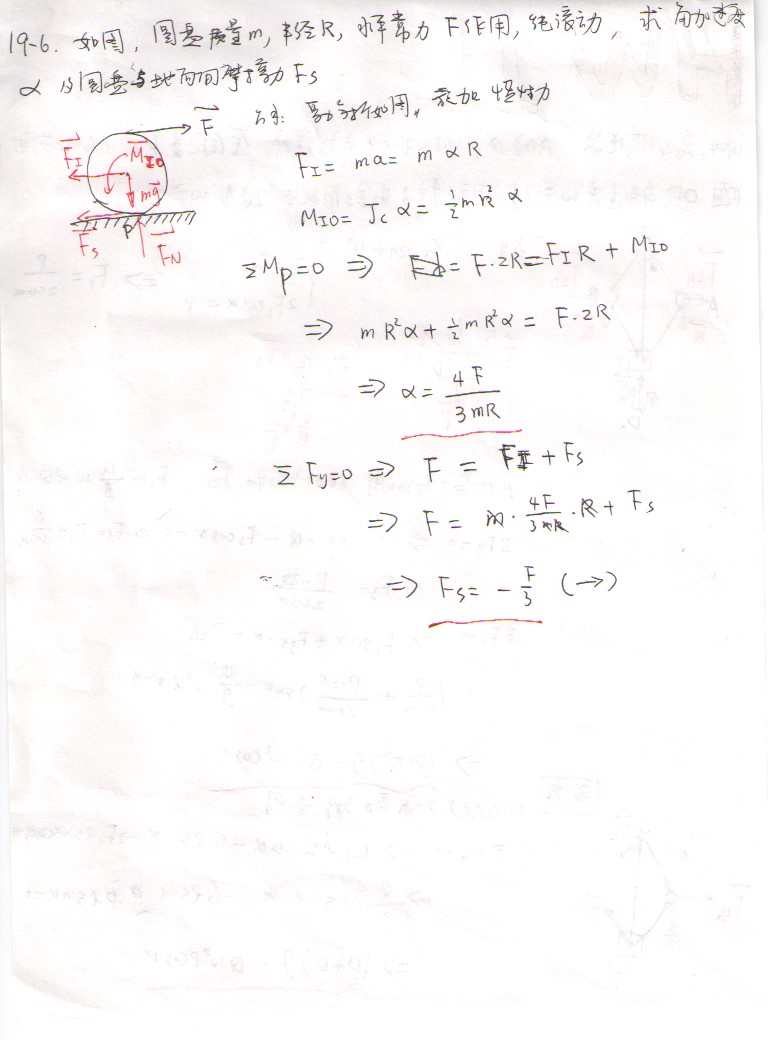 19-6. 如图, 圆盘质量m, 半径R, 水平常力 F作用, 纯滚动, 求角加速度
α 及圆盘与地面间摩擦力 Fs
解: 受力分析如图, 虚加惯性力
F
F_I
M_IO
mg
F_s
P
F_N
F_I = ma = m α R
M_IO = J_c α = ½ m R² α
ΣM_P=0 ⇒ = F·2R = F_I R + M_IO
⇒ mR²α + ½ mR²α = F·2R
⇒ α = 4F / 3mR
ΣFy=0 ⇒ F = F_I + Fs
⇒ F = m · 4F / 3mR · R + Fs
⇒ Fs = - F/3 (→)